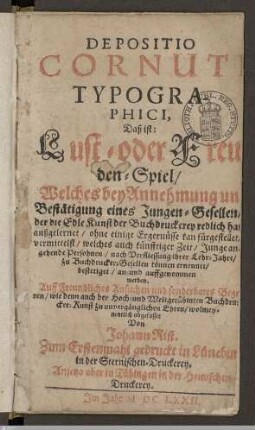 DEPOSITIO
CORNUT
TYPOGRA-
PHICI,
Das ist:
Lust- oder Freu
den-Spiel/
Welches bey Annehmung un
Bestätigung eines Jungen-Gesellen/
der die Edle Kunst der Buchdruckerey redlich hat
außgelernet / ohne einige Ergernüsse kan fürgestellet/
vermittelst / welches auch künfftiger Zeit / Junge an
gehende Persohnen / nach Verfliessung ihrer Lehr-Jahre/
zu Buchdrucker-Gesellen können ernennet/
bestettiget / an- und auffgenommen
werden,
Auff Freundliches Ansuchen und sonderbares Bege
ren/ wie denn auch der Hoch- und Weitgerühmten Buchdru
cker-Kunst zu unvergänglichen Ehren/ wolmey-
nentlich abgefasset
Von
Johann Rist.
Zum Erstenmahl gedruckt in Lünebur
in der Sternischen-Druckerey.
Anjetzo aber in Tübingen in der
Druckerey.
Im Jahr M DC LXXII.